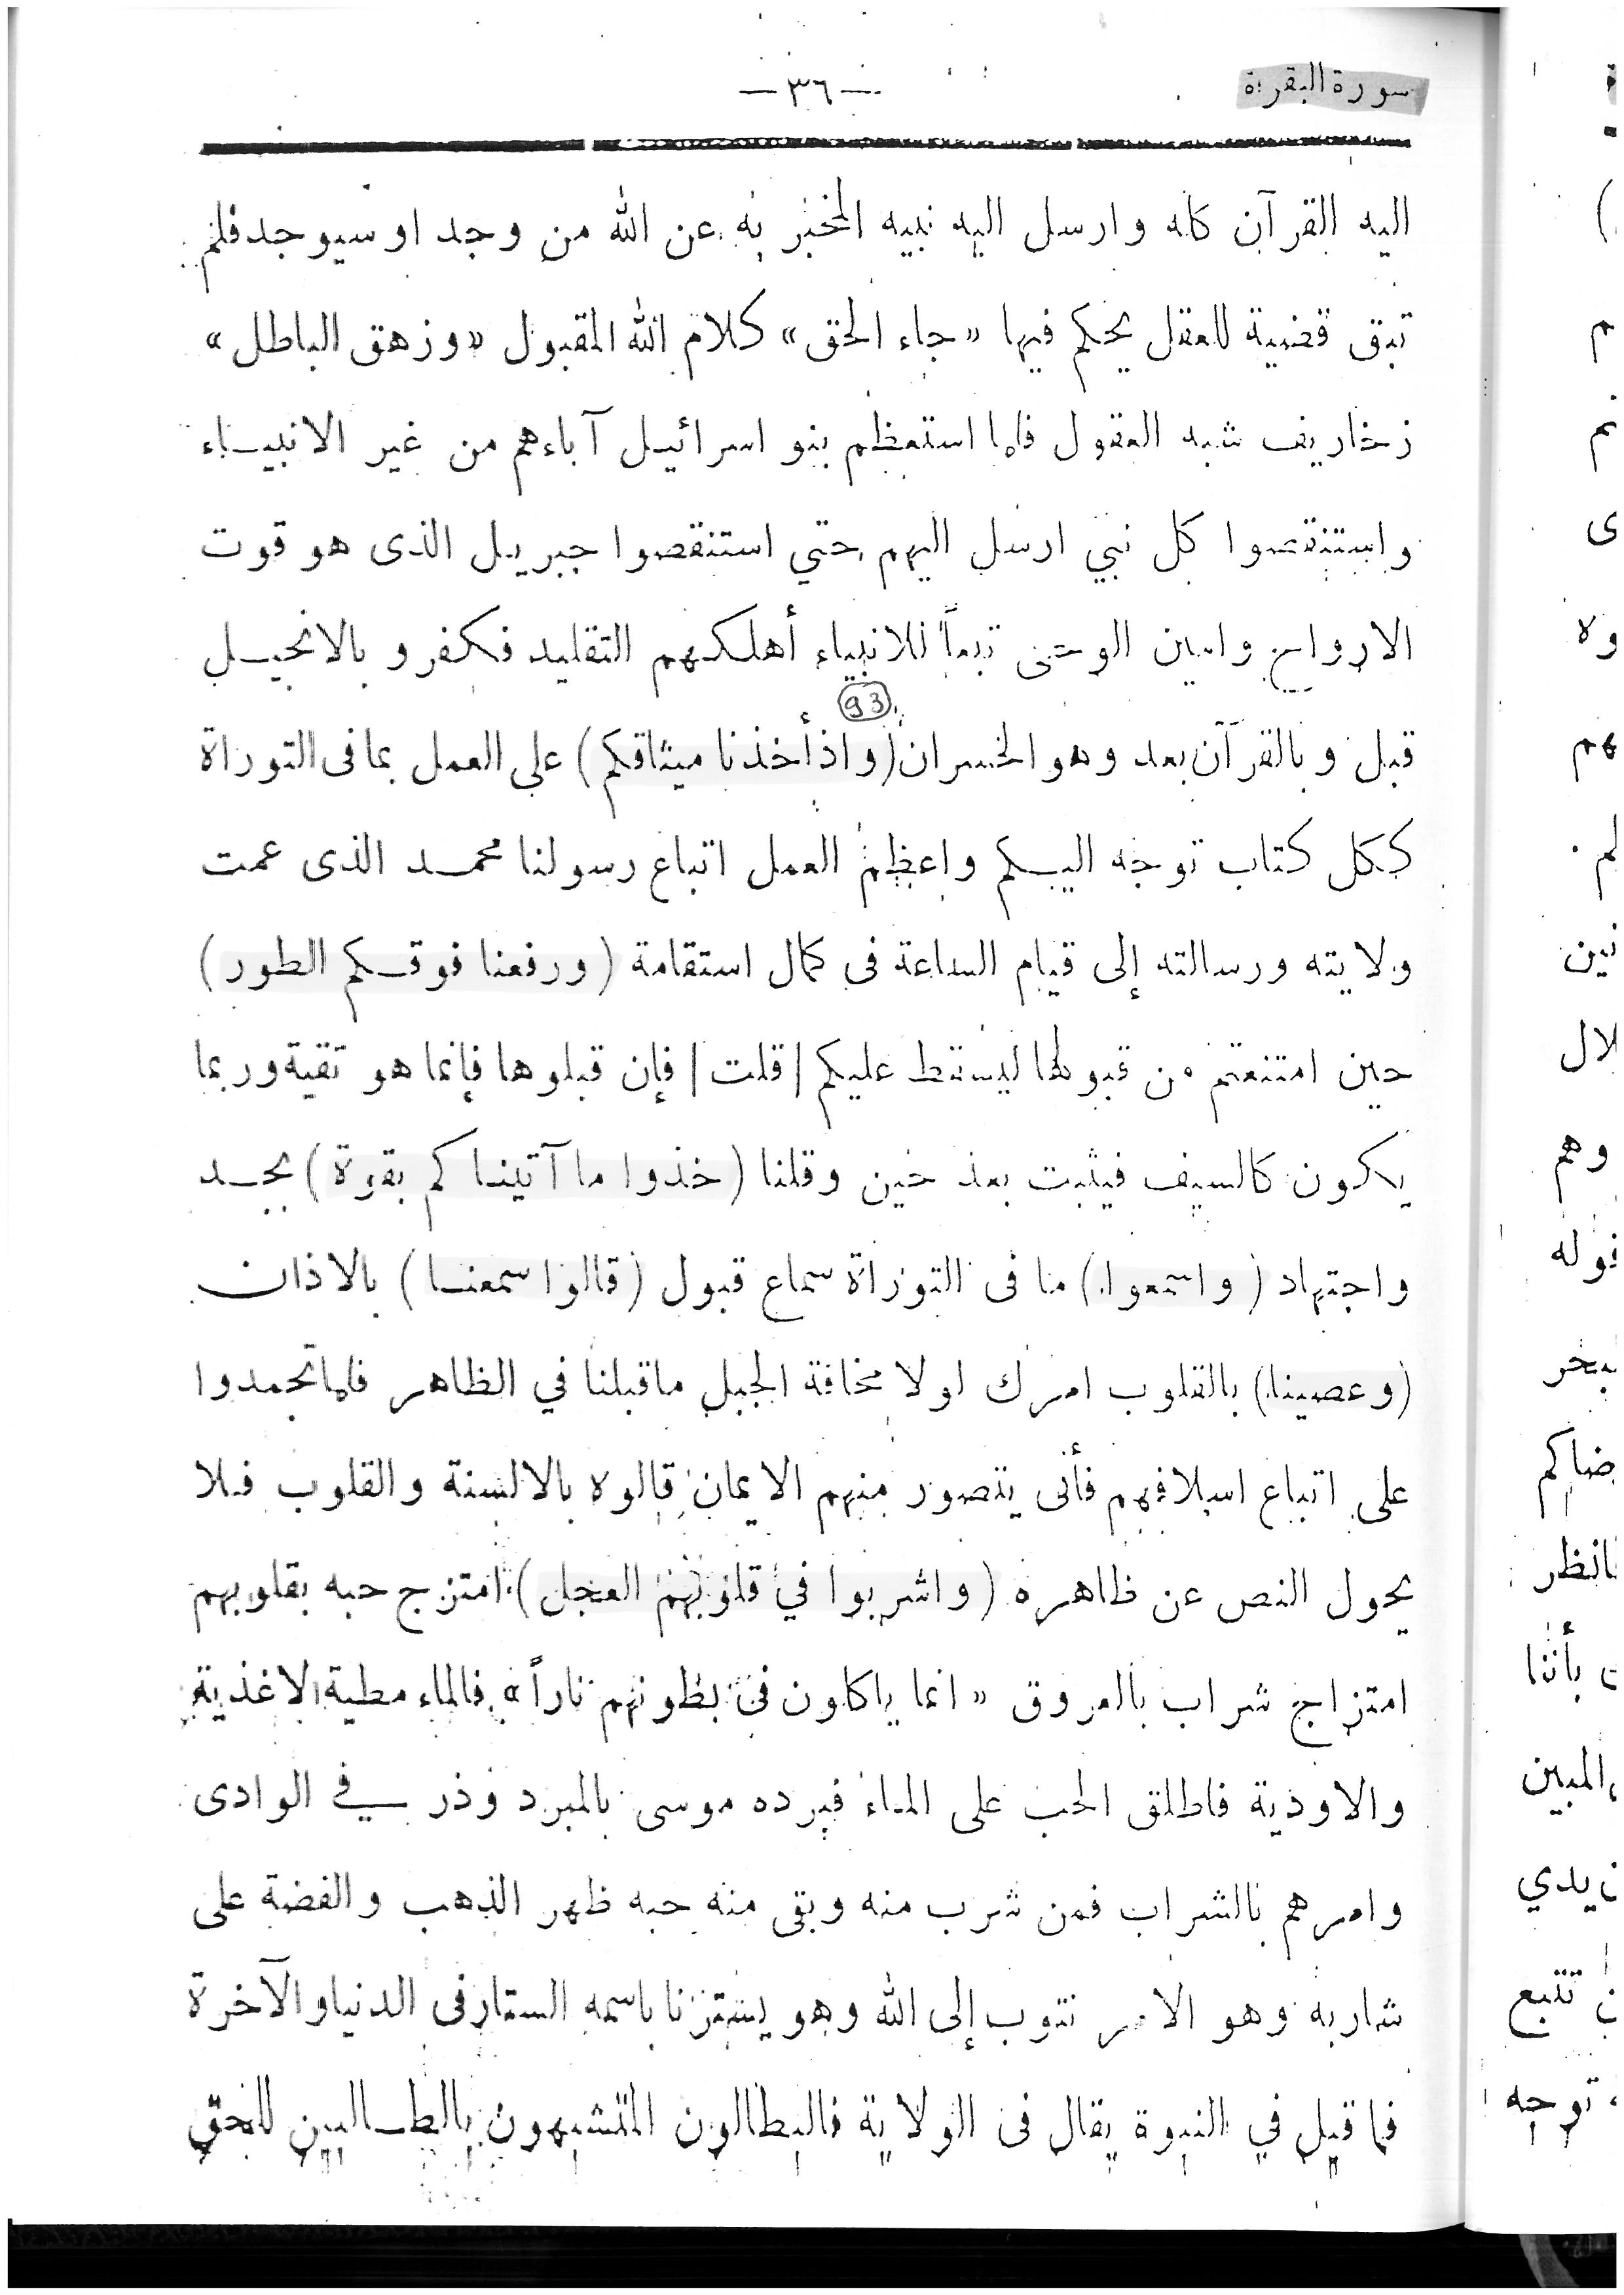 سورة البقرة
— ٣٦ —
اليه القرآن كله وارسل اليه نبيه المخبر به عن الله من وجد او سيوجد فلم
تبق قضية للعقل يحكم فيها «جاء الحق» كلام الله المقبول «وزهق الباطل»
زخاريف شبه العقول فلما استعظم بنو اسرائيل آباءهم من غير الانبياء
واستنقصوا كل نبي ارسل اليهم حتي استنقصوا جبريل الذى هو قوت
الارواح وامين الوحى تبعاً للانبياء أهلكهم التقليد فكفرو بالانجيل
93
قبل وبالقرآن بعد وهو الخسران (واذ أخذنا ميثاقكم) على العمل بما فى التوراة
ككل كتاب توجه اليكم واعظم العمل اتباع رسولنا محمد الذى عمت
ولايته ورسالته إلى قيام الساعة فى كمال استقامة (ورفعنا فوقكم الطور)
حين امتنعتم من قبولها ليسقط عليكم |قلت| فإن قبلوها فإنما هو تقية وربما
يكون كالسيف فيثبت بعد حين وقلنا (خذوا ما آتيناكم بقوة) بجد
واجتهاد (واسمعوا) ما فى التوراة سماع قبول (قالوا سمعنا) بالاذان
(وعصينا) بالقلوب امرك لولا مخافة الجبل ماقبلنا في الظاهر فلما تجمدوا
على اتباع اسلافهم فأنى يتصور منهم الايمان قالوه بالالسنة والقلوب فلا
يحول النص عن ظاهره (واشربوا في قلوبهم العجل) امتزج حبه بقلوبهم
امتزاج شراب بالعروق «انما ياكلون فى بطونهم ناراً» فالماء مطية الاغذية
والاوذية فاطلق الحب على الماء فبرده موسى بالمبرد وذر في الوادى
وامرهم بالشراب فمن شرب منه وبقى منه حبه ظهر الذهب والفضة على
شاربه وهو الامر نتوب إلى الله وهو يسترنا باسمه الستار فى الدنيا والآخرة
فما قيل في النبوة يقال فى الولاية فالبطالون المتشبهون بالطالبين للحق